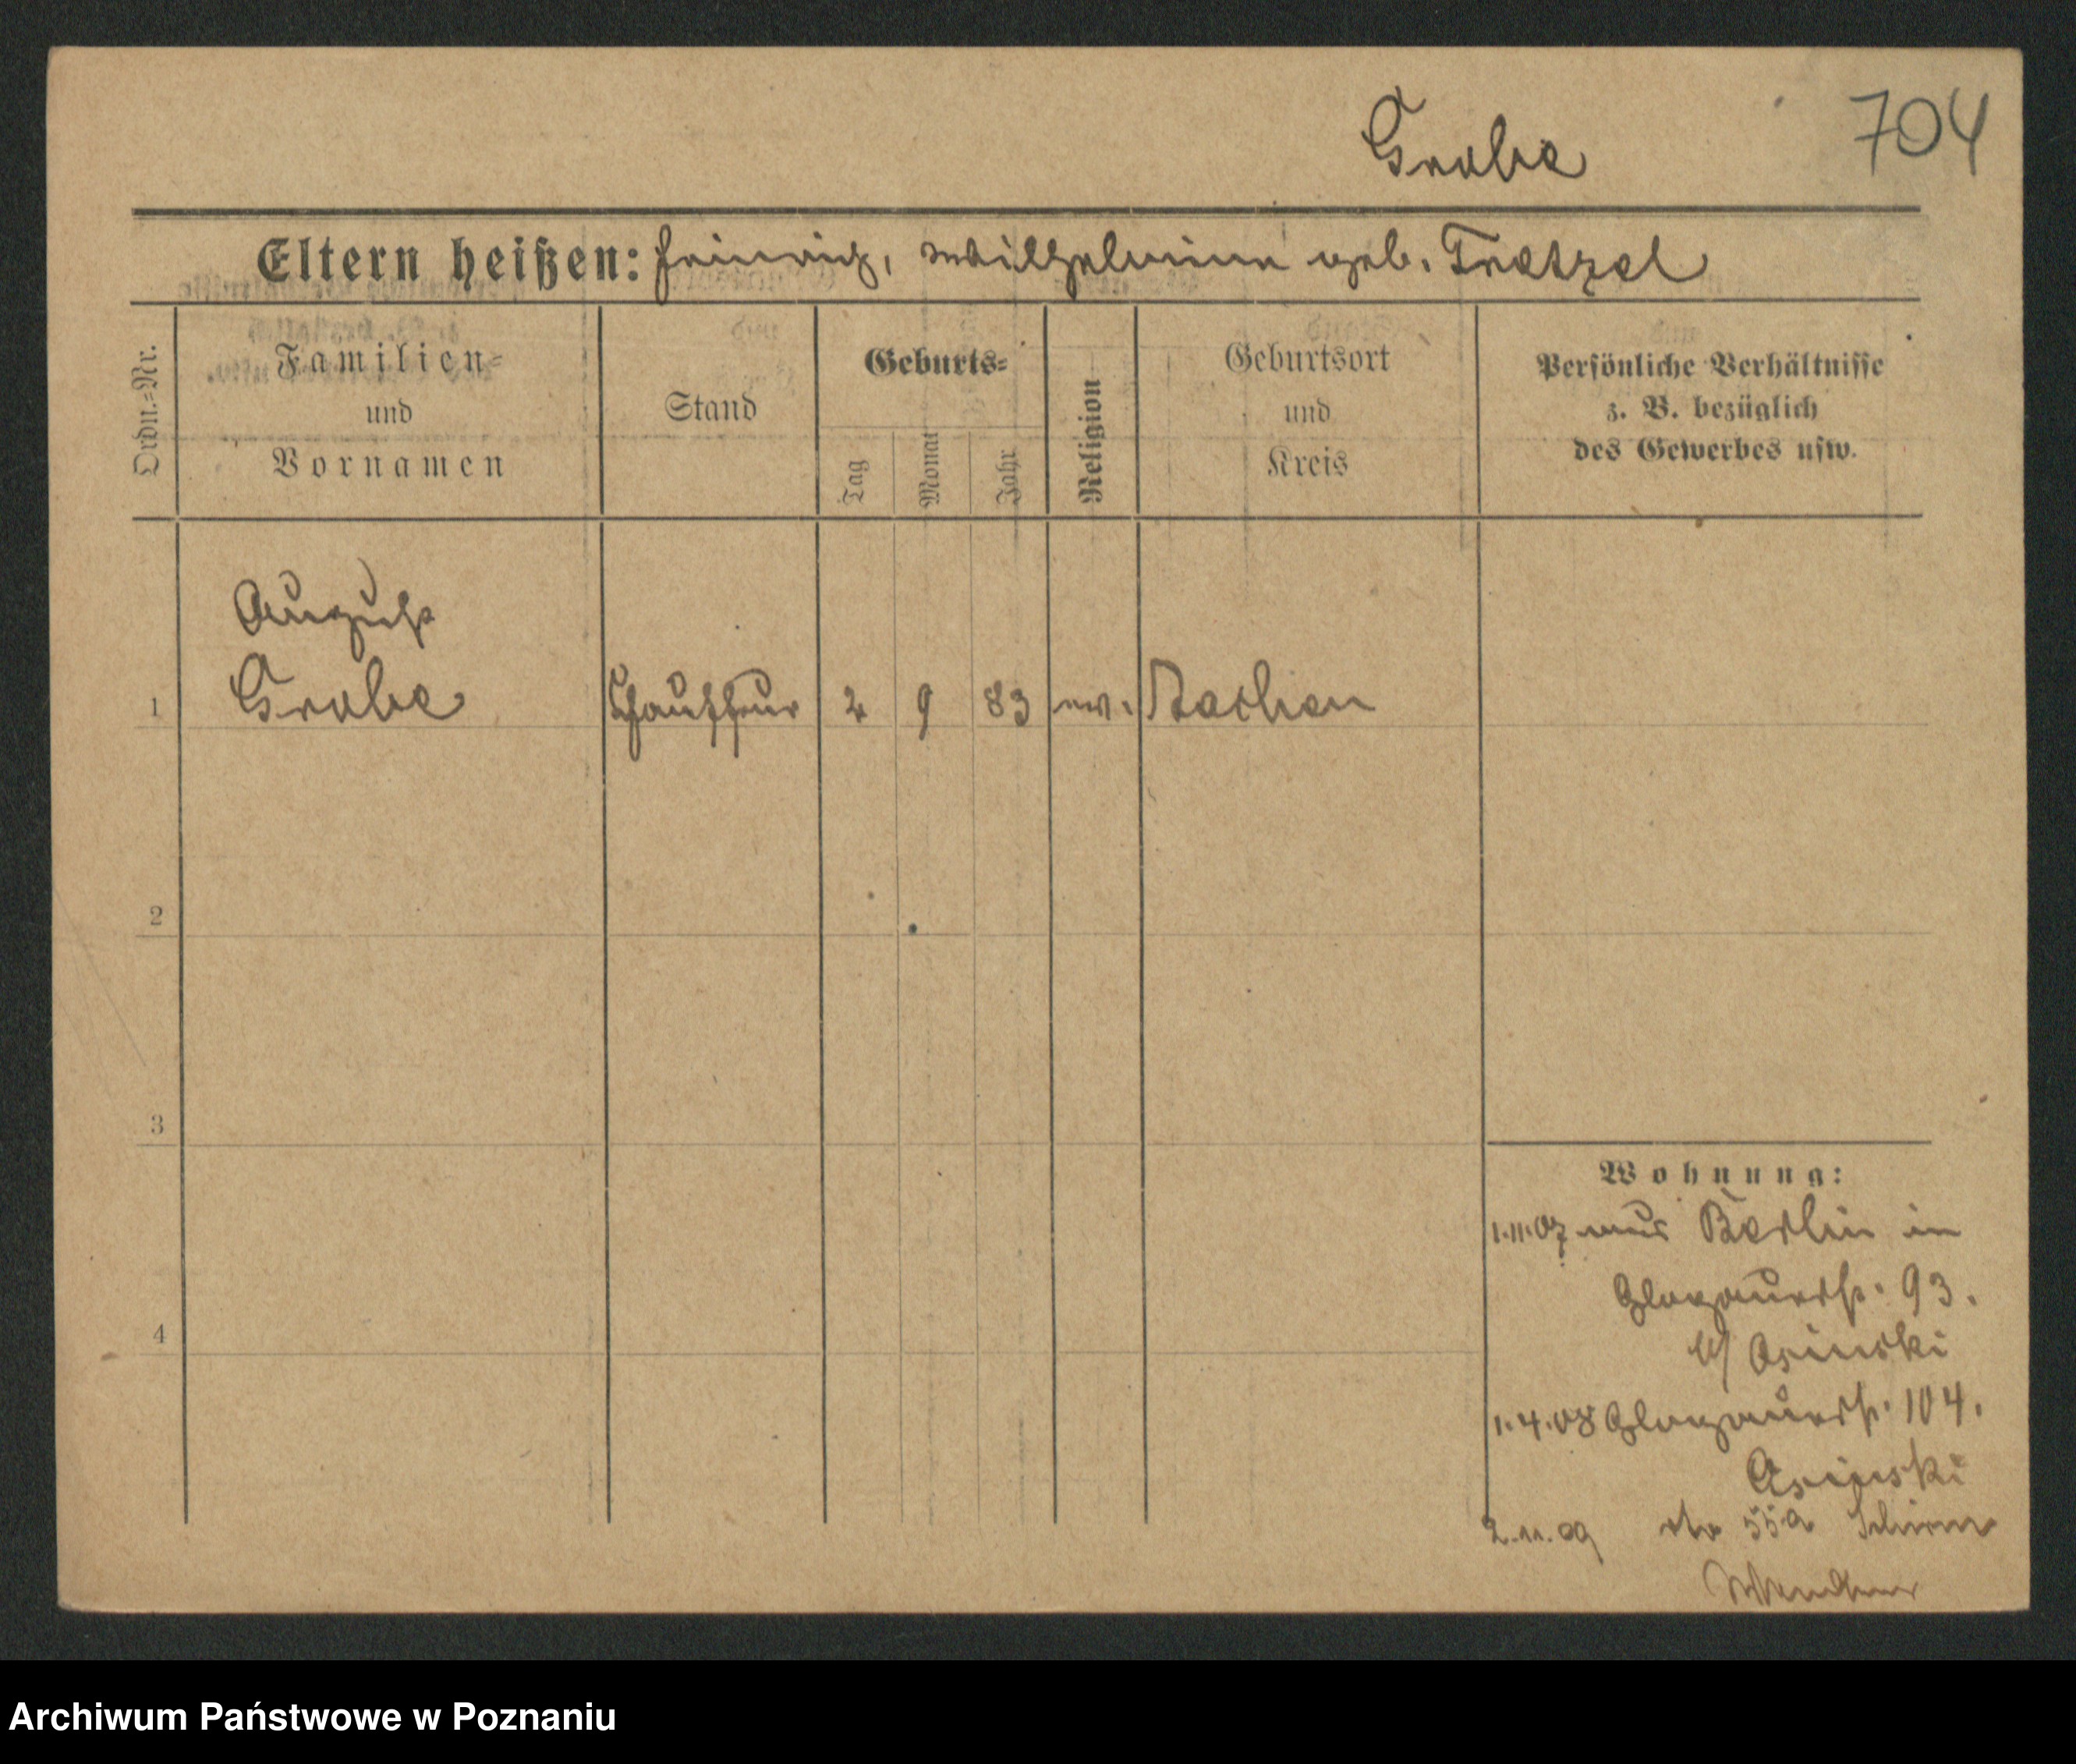 Grabe 704
Eltern heißen: Heinrich, Wilhelmine geb. Tretzel
Ordn.=Nr.
Familien=
und
Vornamen
Stand
Geburts=
Tag
Monat
Jahr
Religion
Geburtsort
und
Kreis
Persönliche Verhältnisse
z. B. bezüglich
des Gewerbes usw.
August
1 Grabe Chauffeur 2 9 83 ev.
2
3
4
Wohnung:
1.11.07 aus Berlin in
Glogauerstr. 93.
b/ Asinski
1.4.08 Glogauerstr. 104.
Asinski
2.11.09 dto 55a
Archiwum Państwowe w Poznaniu